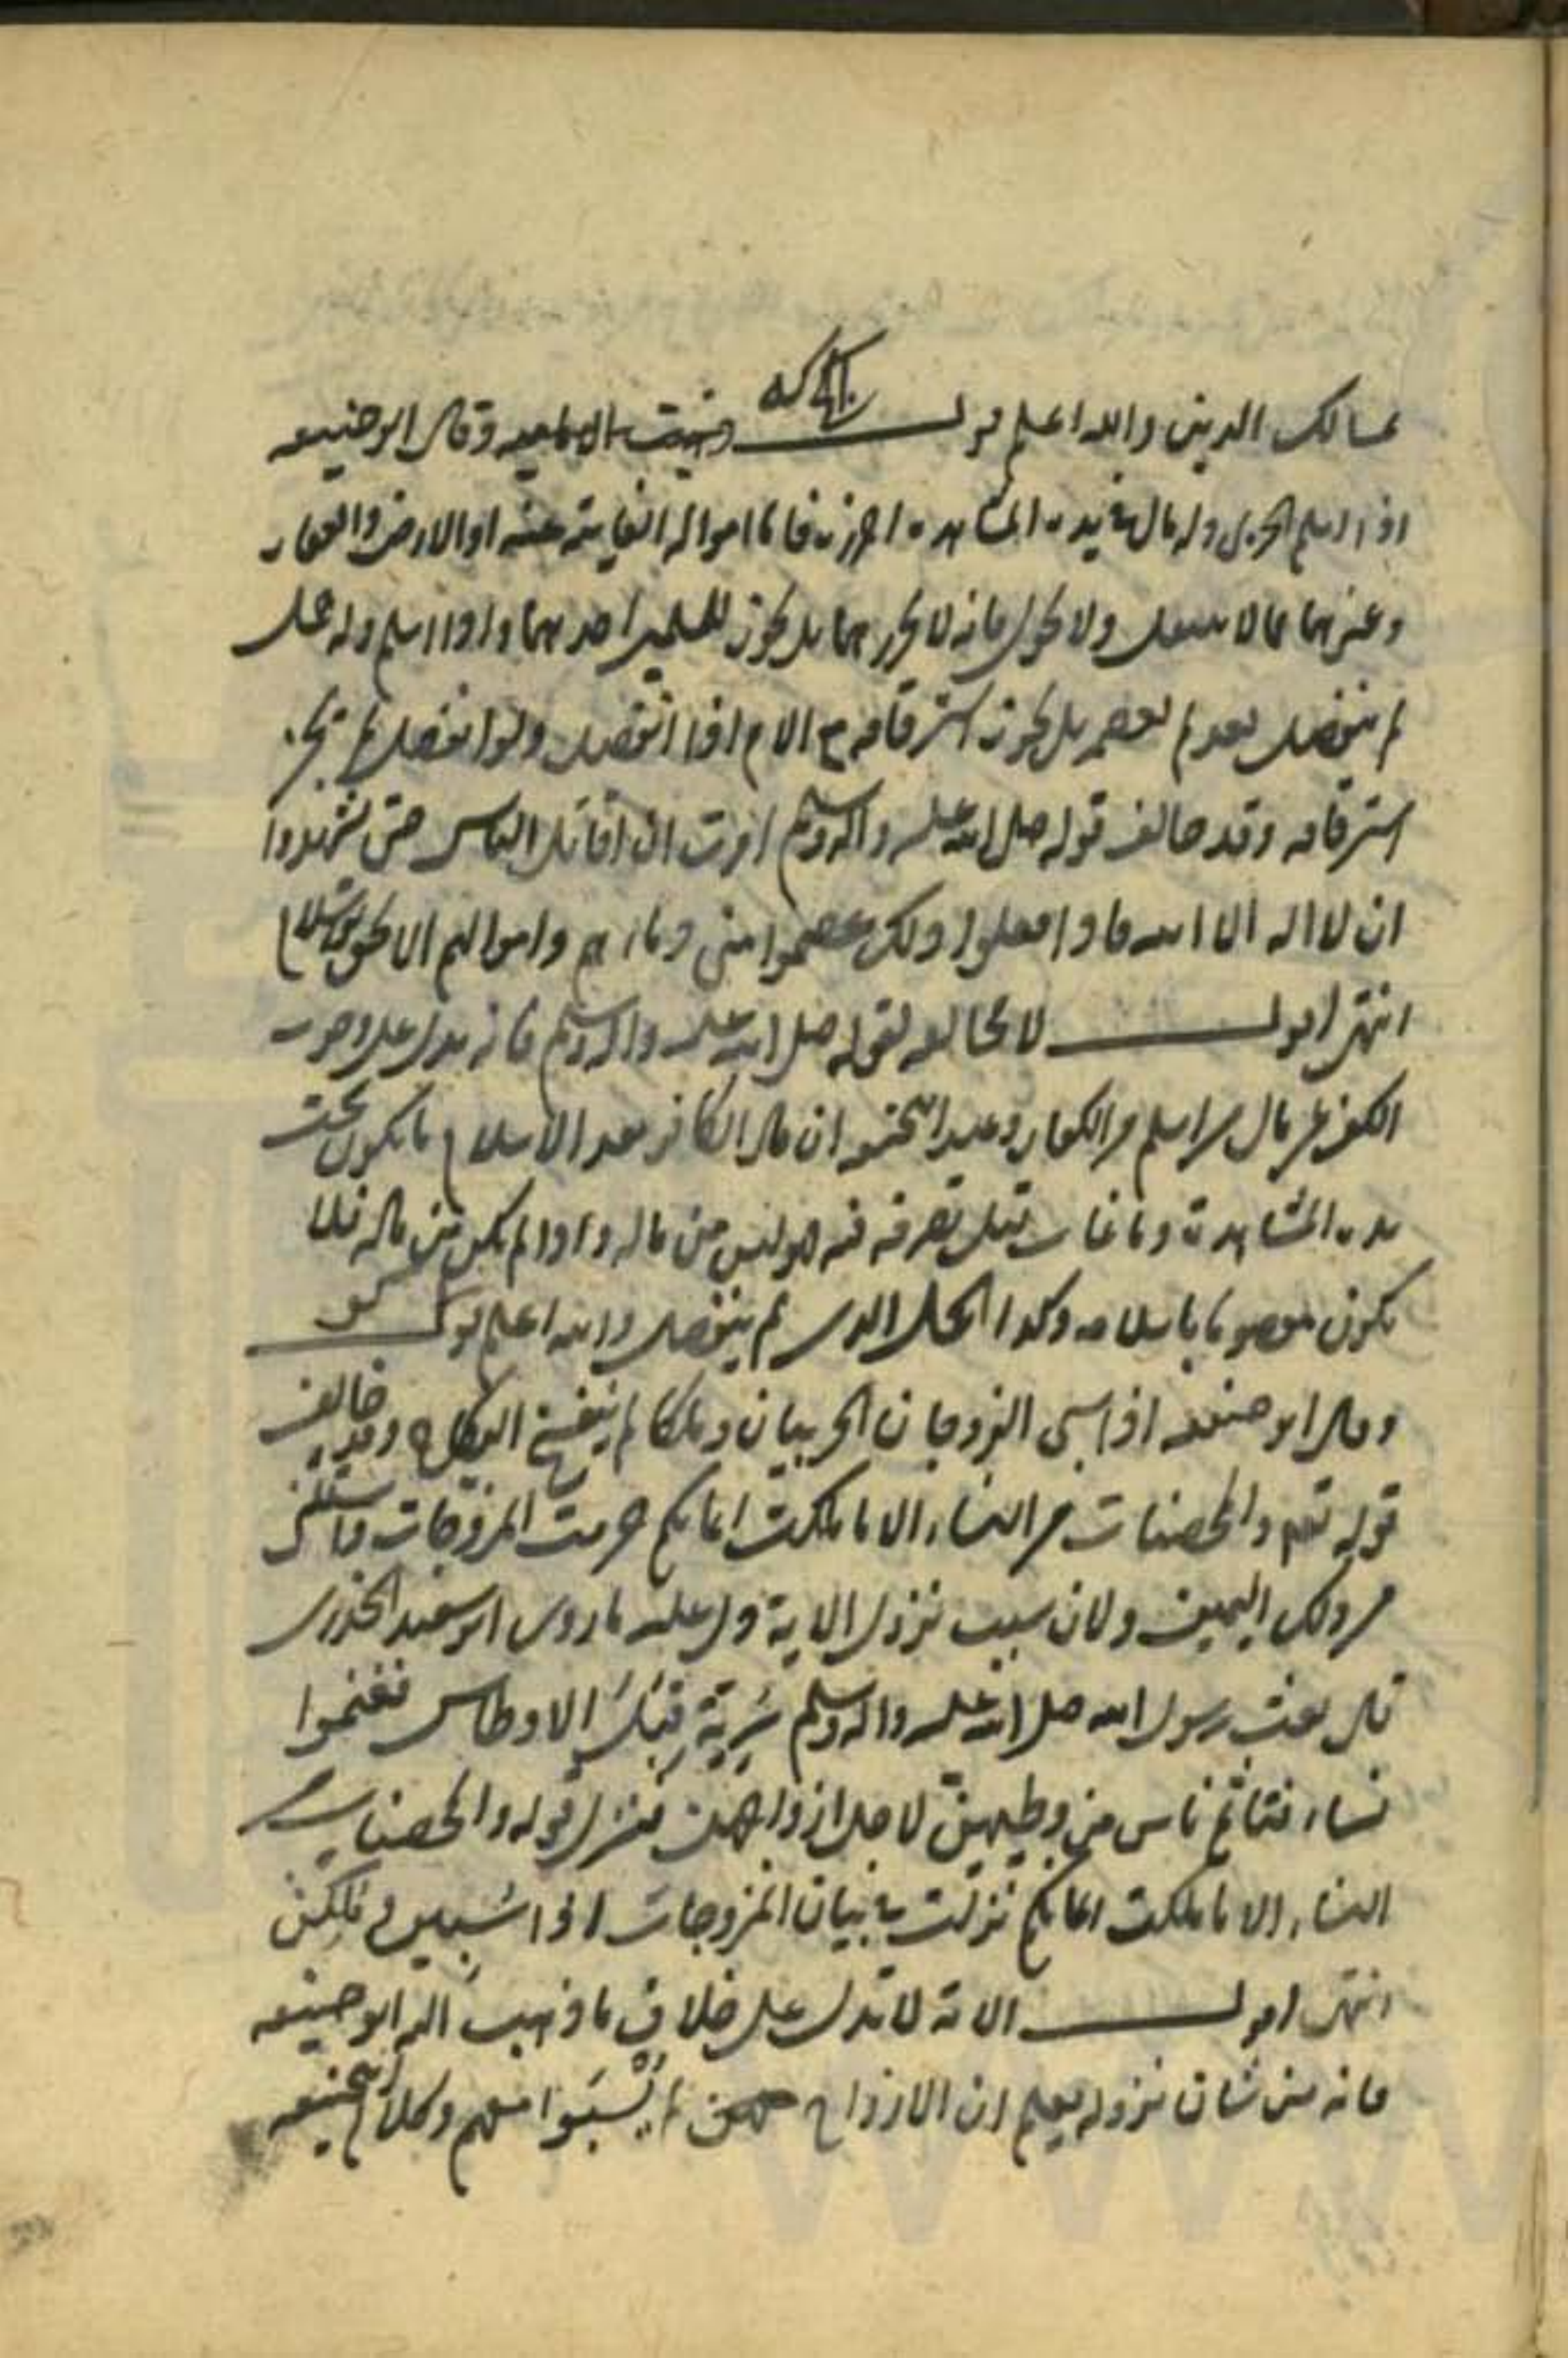 مسالك الدين والله اعلم قوله وذهبت الاماميه وقال ابو حنيفه
اذا اسلم الحربى وله مال فى يده المشاهدة احرزه فاما امواله الغايبة عنه او الارض والعقار
وغيرهما مما لا ينقل ولا يحول فانه لا يحرزهما بل يجوز للمسلمين اخذهما واذا اسلم وله حمل
لم ينفصل بعد لم يعصمه بل يجوز استرقاقه مع الام اذا انفصل ولو انفصل لم يجز
استرقاقه وقد خالف قوله صلى الله عليه واله وسلم امرت ان اقاتل الناس حتى يشهدوا
ان لا اله الا الله فاذا فعلوا ذلك عصموا منى دماءهم واموالهم الا بحق الاسلام
انتهى اقول لا مخالفه لقوله صلى الله عليه واله وسلم فانه يدل على وجوب
الكف عن مال من اسلم من الكفار وعند ابيحنيفه ان مال الكافر بعد الاسلام ما يكون تحت
يده المشاهدة وما غاب قبل تصرفه فيه فهو ليس من ماله واذا لم يكن من ماله فلا
يكون معصوما باسلامه وكذا الحمل الذى لم ينفصل والله اعلم قوله
وقال ابو حنيفه اذا سبى الزوجان الحربيان وملكا لم ينفسخ النكاح وقد خالف
قوله تعم والمحصنات من النساء الا ما ملكت ايمانكم حرمت المزوجات واستثنى
من ذلك اليمين ولان سبب نزول الاية دل عليه ما روى ابو سعيد الخدرى
قال بعث رسول الله صلى الله عليه واله وسلم سرية قبل الاوطاس فغنموا
نساء فتاثم ناس من وطيهن لاجل ازواجهن فنزل قوله والمحصنات من
النساء الا ما ملكت ايمانكم نزلت فى بيان المزوجات اذا سبين وملكن
انتهى اقول الاية لا تدل على خلاف ما ذهب اليه ابو حنيفه
فانه من شان نزوله يعلم ان الازواج لم يسبوا معهم وكلام ابيحنيفه